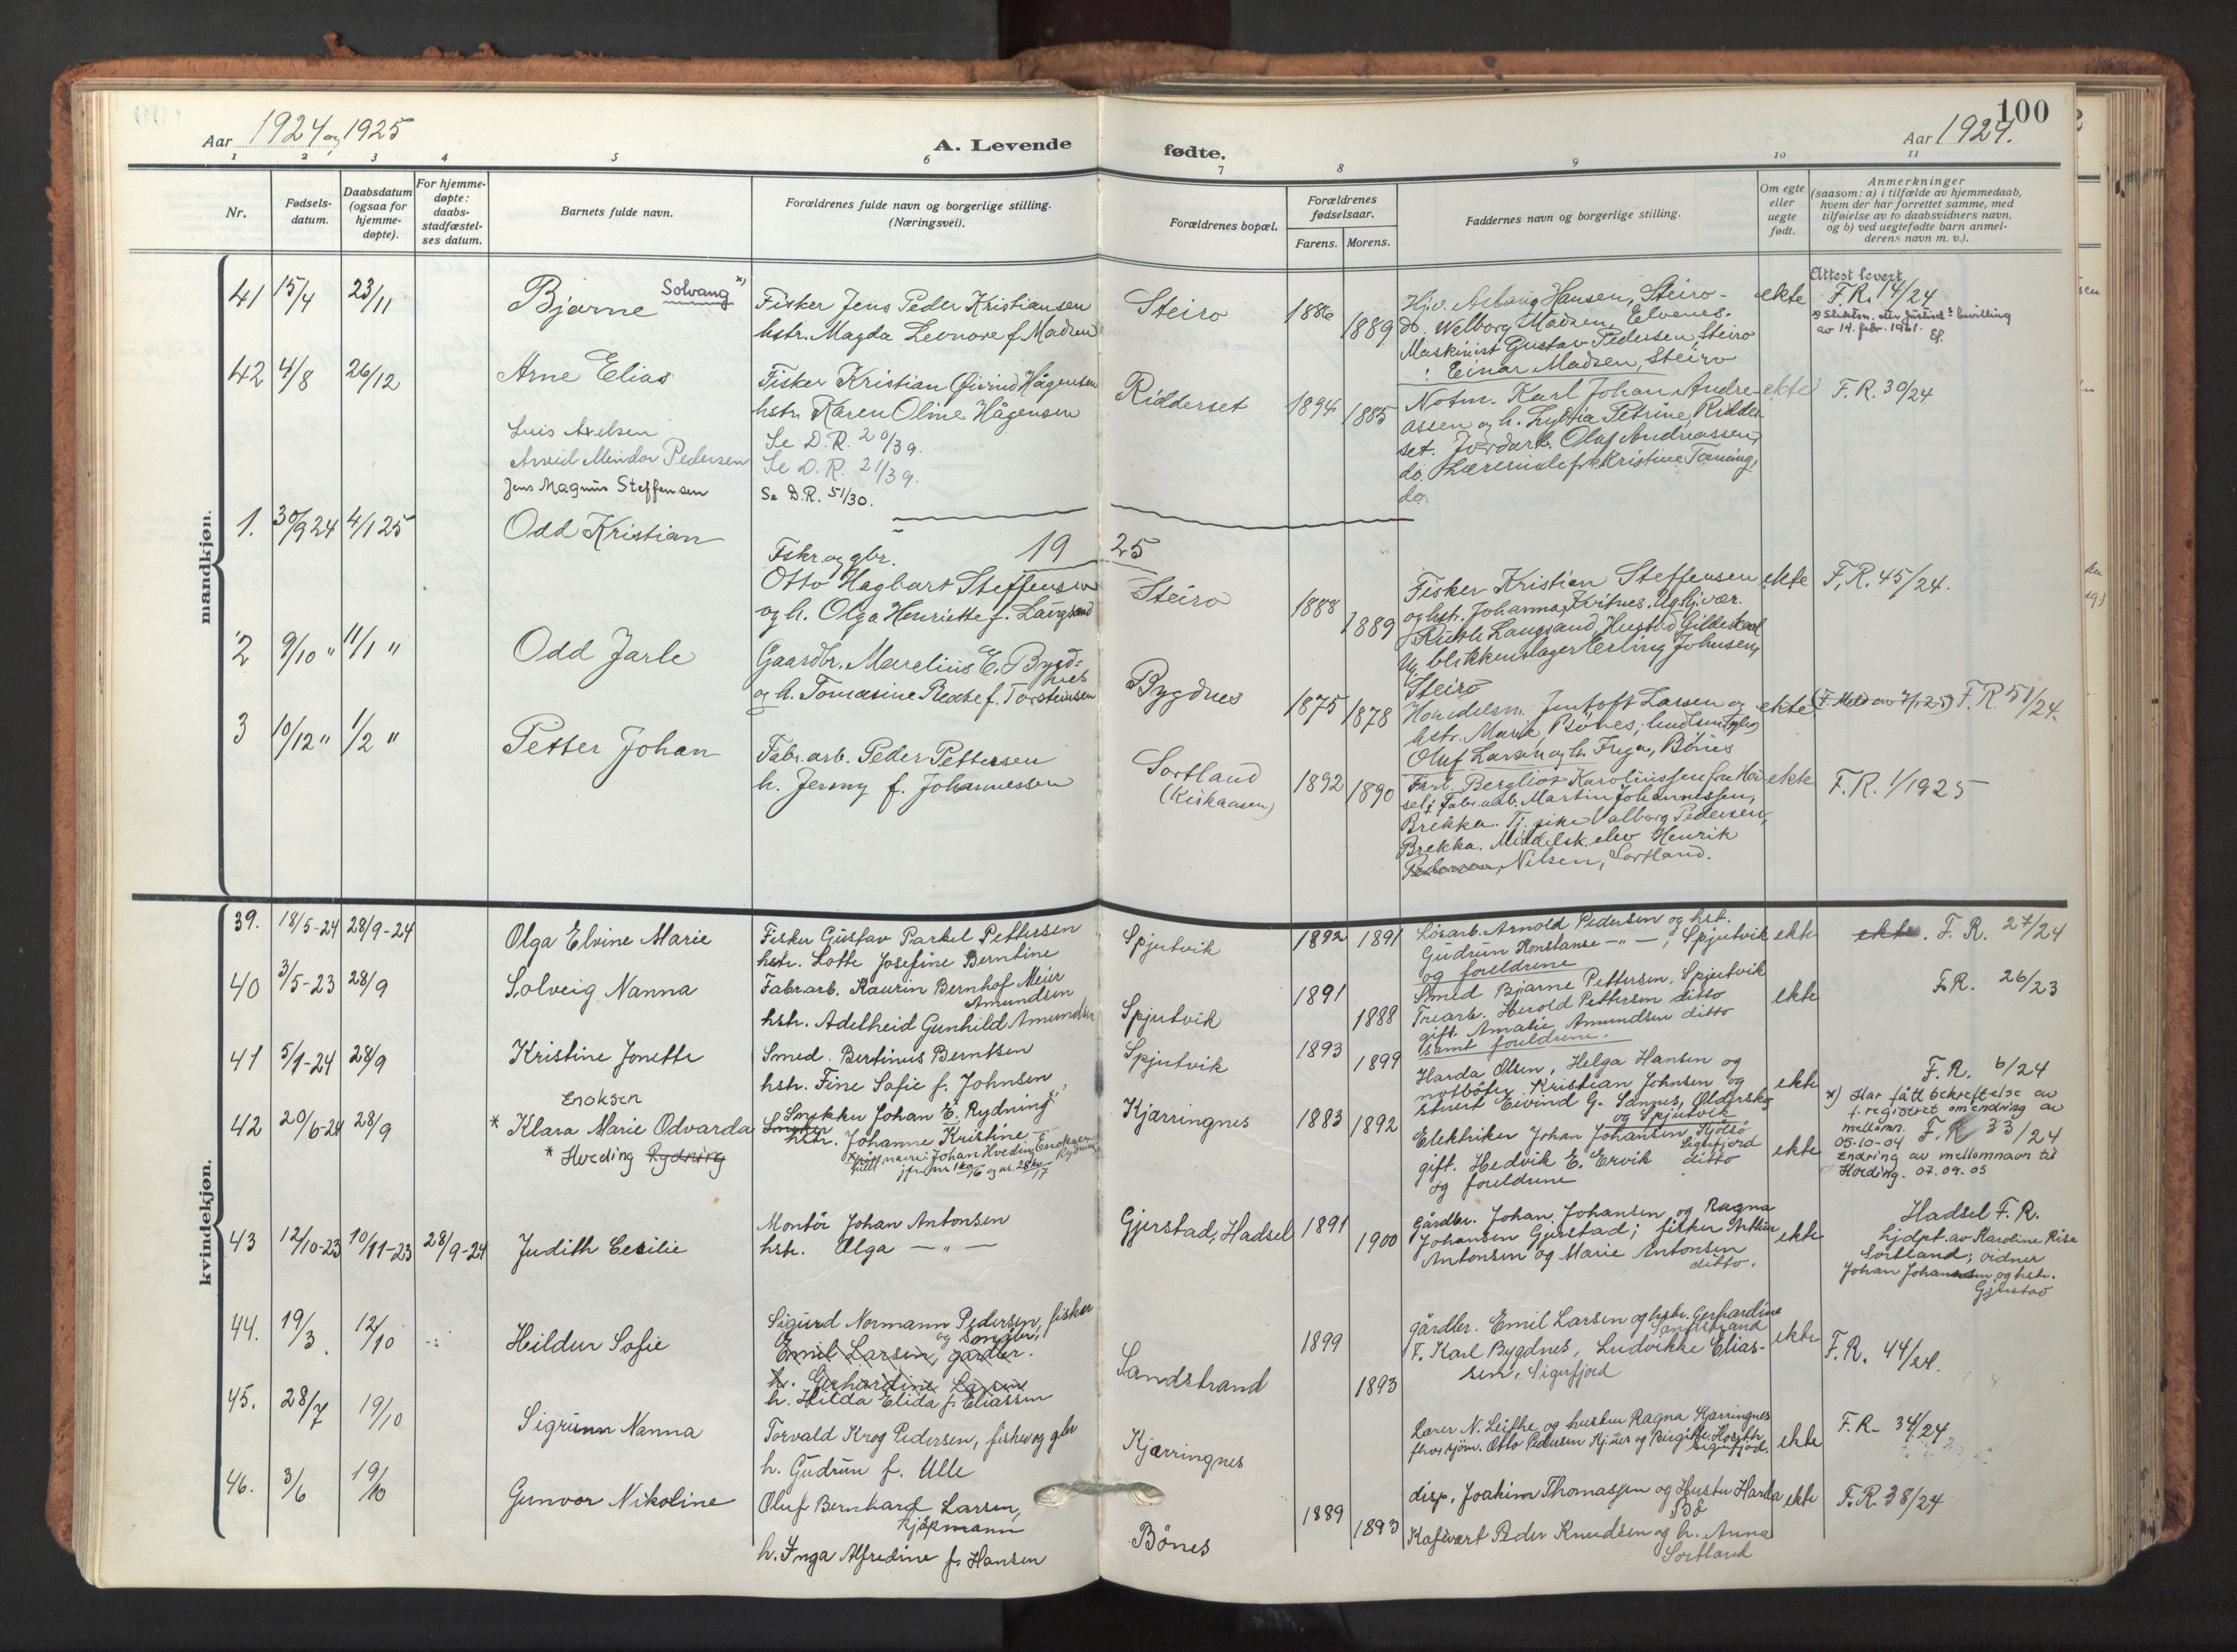 100
Aar 1924 og 1925
A. Levende
fødte.
Aar 1924.
1 2 3 4 5 6 7 8 9 10 11
Nr.
Fødsels-
datum.
Daabsdatum
(ogsaa for
hjemme-
døpte).
For hjemme-
døpte:
daabs-
stadfæstel-
ses datum.
Barnets fulde navn.
Forældrenes fulde navn og borgerlige stilling.
(Næringsvei).
Forældrenes bopæl.
Forældrenes
fødselsaar.
Farens. Morens.
Faddernes navn og borgerlige stilling.
Om egte
eller
uegte
født.
Anmerkninger
(saasom: a) i tilfælde av hjemmedaab,
hvem der har forrettet samme, med
tilføielse av to daabsvidners navn,
og b) ved uegtefødte barn anmel-
derens navn m. v.).
mandkjøn.
41 15/4 23/11
Bjarne Solvang *)
Fisker Jens Peder Kristiansen
hstr. Magda Leonore f. Madsen
Steiro
1886 1889
Hjv. Aslaug Hansen, Steiro -
do. Valborg Madsen, Elvenes.
Maskinist Gustav Pedersen, Steiro
Einar Madsen, Steiro
ekte
Attest levert
F.R. 14/24
av 14. febr. 1961.
42 4/8 26/12
Arne Elias
Fisker Kristian Øivind Hågensen
hstr. Karen Oline Hågensen
Ridderset
1894 1885
Notm. Karl Johan Andre-
assen og h. Lydia Petrine, Ridder-
set. Jordarb. Oluf Andreassen,
do. Kristine
do.
ekte
F.R. 30/24
Luis Axelsen Se D.R. 20/39.
Arvid Mindor Pedersen Se D.R. 21/39.
Jens Magnus Steffensen Se D.R. 51/30.
1925
1. 30/9 24 4/1 25
Odd Kristian
Fiskr. og gbr.
Otto Hagbart Steffensen
og h. Olga Henriette f. Langsand
Steiro
1888 1889
Fisker Kristian Steffensen
og hstr. Johanna, Kvitnes. Ug. hj.vær.
Ruth Langsand, Hustad, Gildeskaal
Ug. blikkenslager Erling Johnsen,
Steiro
ekte
F.R. 45/24.
2 9/10 " 11/1 "
Odd Jarle
Gaardbr. Marelius E. Bygd-
nes
og h. Tomasine Beate f. Torsteinsen
Bygdnes
1875 1878
Handelsm. Jentoft Larsen og
hstr. Marie, Bönes,
Oluf Larsen og h. Inga, Bönes
ekte
F.R. 51/24.
3 10/12 " 1/2 "
Petter Johan
Fabr.arb. Peder Pettersen
h. Jenny f. Johannessen
Sortland
1892 1890
Bergliot Karoliussen fra Had-
sel; Fabr.arb. Martin Johannessen,
Brekka. Tj. pike Valborg Pedersen,
Brekka. Middelsk. elev Henrik
Pedersen, Nilsen, Sortland.
ekte
F.R. 1/1925
kvindekjøn.
39. 18/5-24 28/9-24
Olga Elvine Marie
Fisker Gustav Parkel Pettersen
hstr. Lotte Josefine Berntine
Spjutvik
1892 1891
Lösarb. Arnold Pedersen og hst.
Gudrun Konstanse - " - , Spjutvik
og foreldrene
ekte
ekte. F. R. 27/24
40 3/5-23 28/9
Solveig Nanna
Fabr.arb. Kaurin Bernhof Meier
Amundsen
hstr. Adelheid Gunhild Amundsen
Spjutvik
1891 1888
Smed Bjarne Pettersen, Spjutvik
Trearb. Herold Pettersen ditto
gift. Amalie Amundsen ditto
samt foreldrene.
ekte
F.R. 26/23
41 5/1-24 28/9
Kristine Jonette
Smed. Bertinus Berntsen
hstr. Fine Sofie f. Johnsen
Spjutvik
1893 1899
Harda Olsen, Helga Hansen og
notböter Kristian Johnsen og
stuert Eivind G. Sannes, Oldersko
og Spjutvik
ekte
F.R. 6/24
42 20/6-24 28/9
Enoksen
* Klara Marie Odvarda
* Hveding Rydning
Snekker Johan E. Rydning
hstr. Johanne Kristine
navn: Johan Hveding Enoksen Rydning
Kjærringnes
1883 1892
Elektriker Johan Johansen
Sigerfjord
gift. Hedvik E. Ervik ditto
og foreldrene
ekte
*) Har fått bekreftelse av
f.registret om endring av
mellomn.
05-10-04 F.R. 33/24
Endring av mellomnavn til
Hveding. 07.04.05
43 12/10-23 10/11-23 28/9-24
Judith Cesilie
Montör Johan Antonsen
hstr. Olga - " -
Gjerstad, Hadsel
1891 1900
Gårdbr. Johan Johansen og Ragna
Johansen Gjerstad; fisker Arthur
Antonsen og Marie Antonsen
ditto.
ekte
Hadsel F.R.
hjdpt. av Karoline Rise
Sortland; vidner
Johan Johansen og hstr.
Gjerstad
44. 19/3 12/10
Hildur Sofie
Sigurd Normann Pedersen, fisker
og småbr.
Emil Larsen, gårdbr.
h. Gerhardine Larsen
h. Hilda Elida f. Eliassen
Sandstrand
1899 1893
gårdbr. Emil Larsen og hstr. Gerhardine
Sandstrand
F. Karl Bygdnes, Ludvikke Elias-
sen, Sigerfjord
ekte
F.R. 44/24.
45. 28/7 19/10
Sigrunn Nanna
Torvald Krog Pedersen, fisker og gbr
h. Gudrun f. Ulle
Kjærringnes
Lærer N. Leifhe og hustru Ragna Kjærringnes
Otto Pedersen Kj.nes og Birgitte
Sigerfjord.
ekte
F.R. 34/24
46. 3/6 19/10
Gunvor Nikoline
Oluf Bernhard Larsen,
kjöpmann
h. Inga Alfredine f. Hansen
Bönes
1889 1893
disp. Joakim Thomassen og Hustru Harda
Bö
Kafévert Peder Knudsen og h. Anna
Sortland
ekte
F.R. 38/24